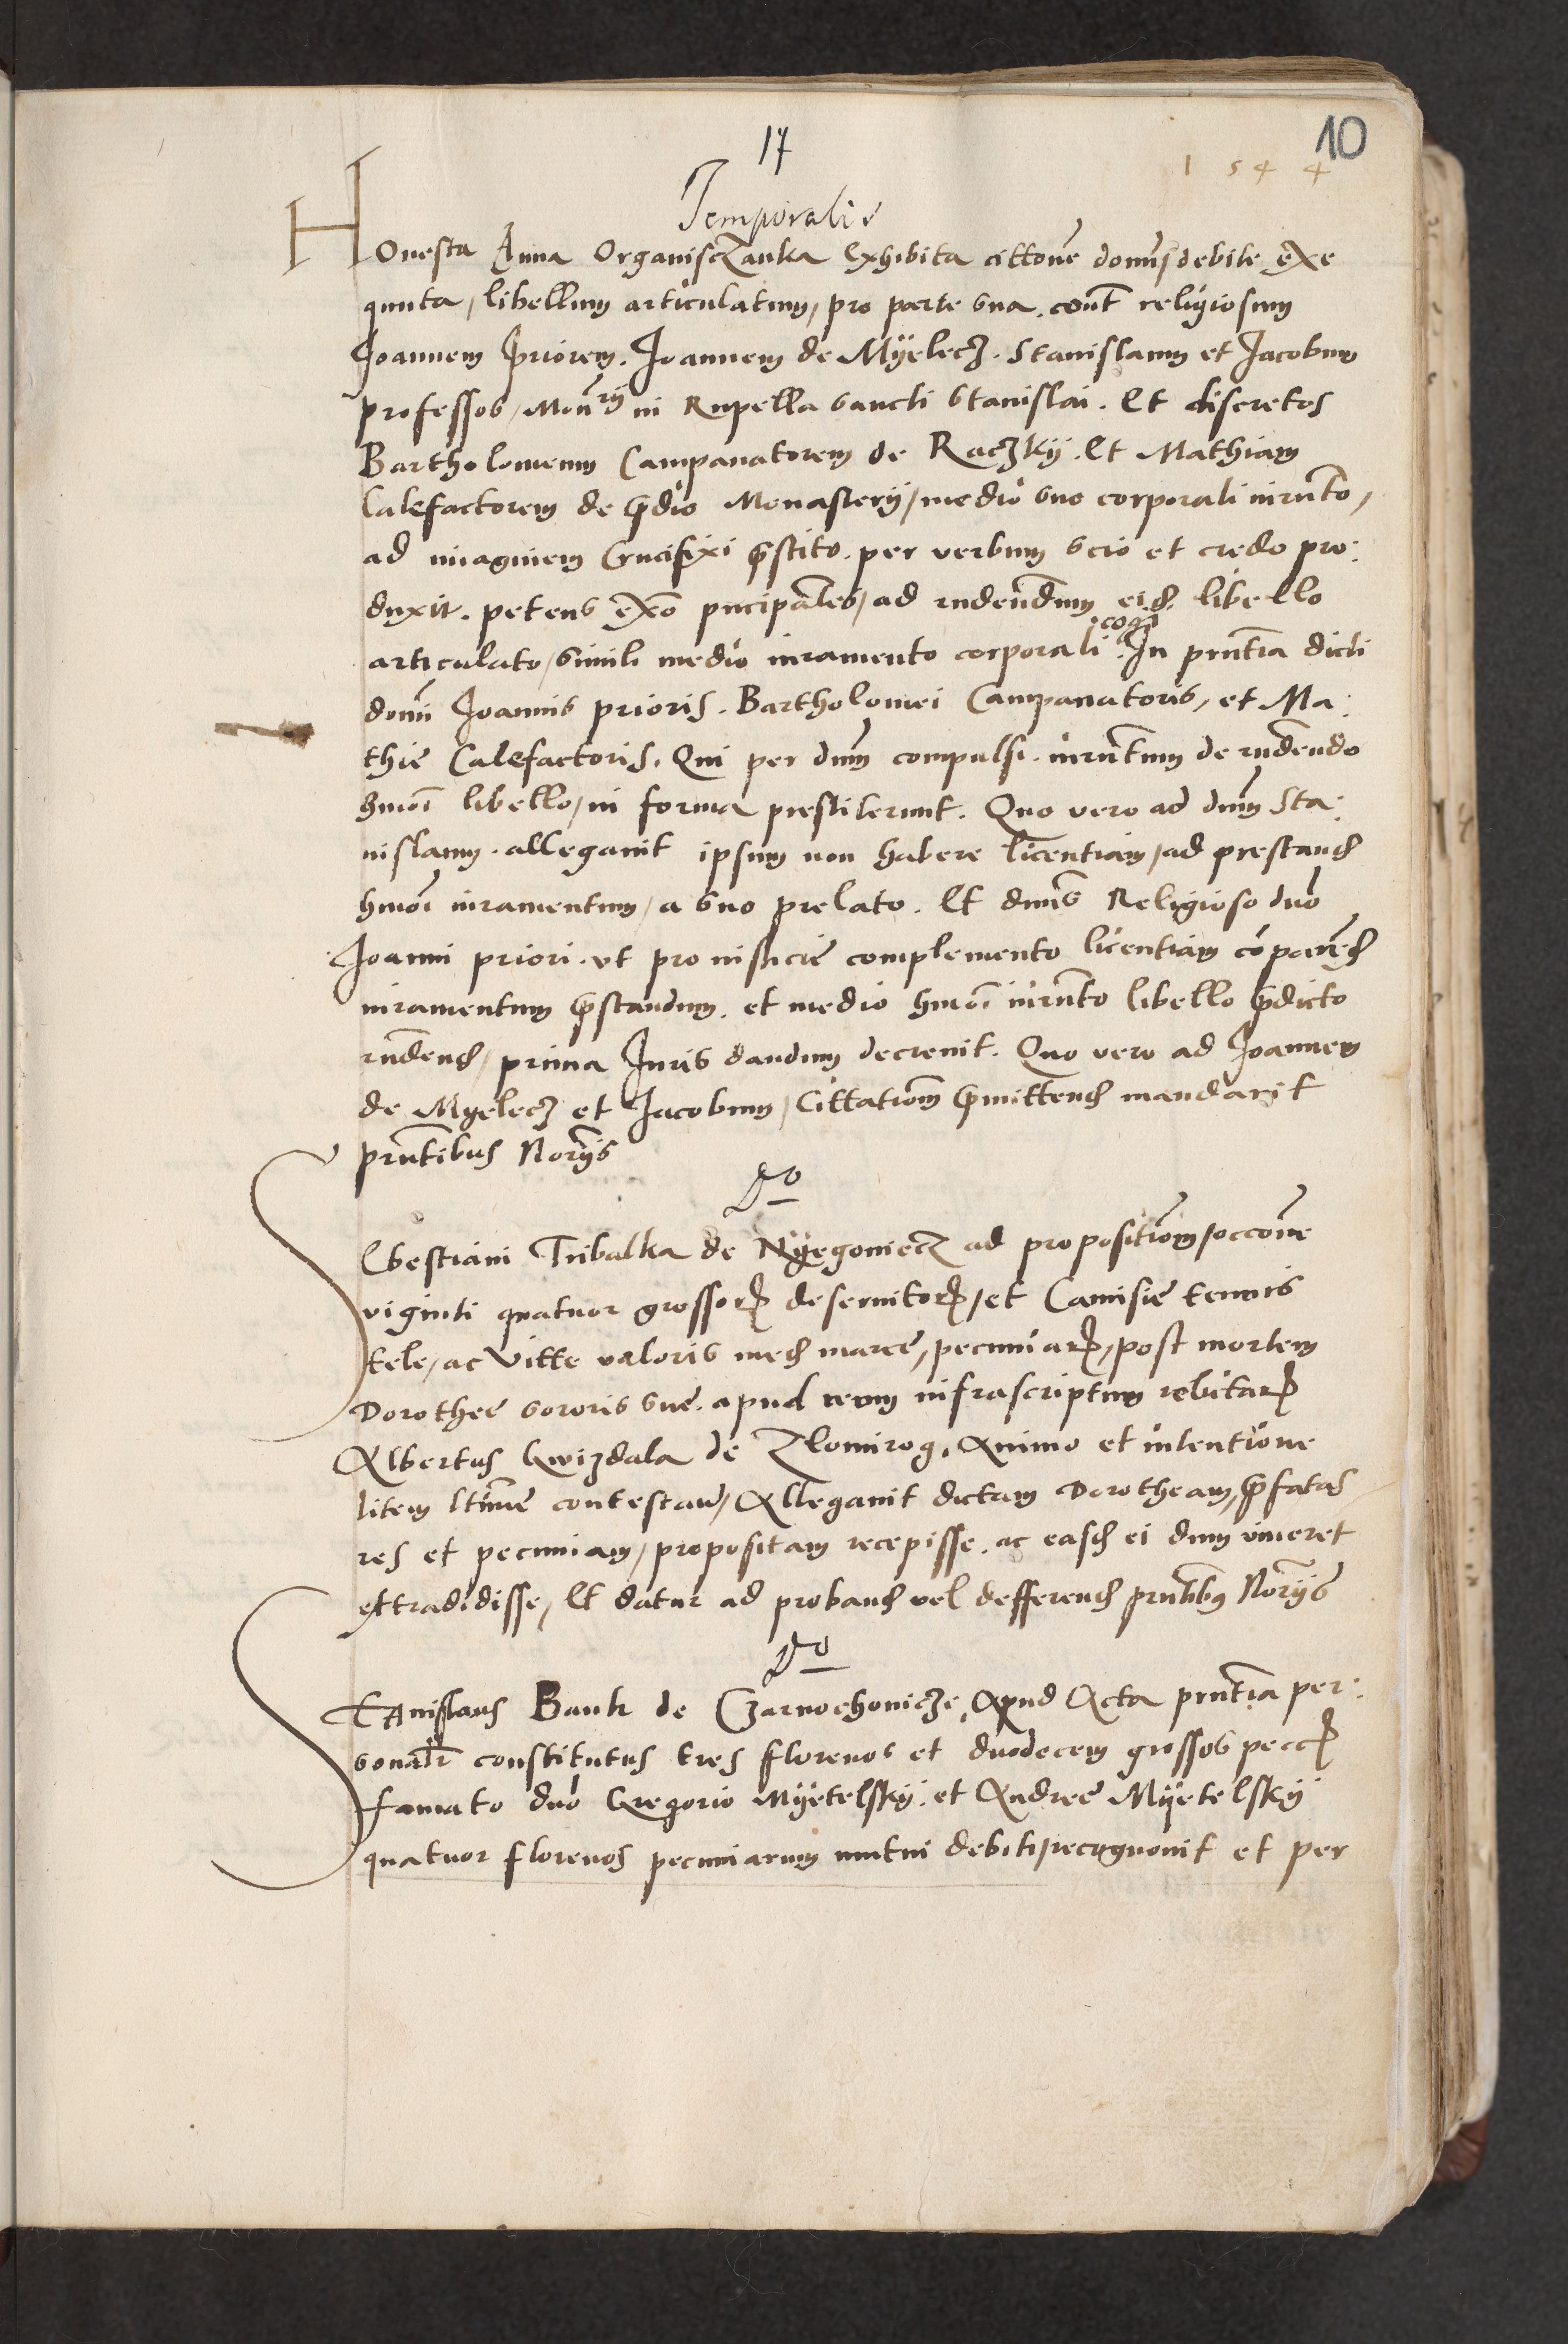 10
17
1544
Temporalis
HOnesta Anna Organisczanka Exhibita cittone̅ domi debite Exe
quuta, libellum articulatum, pro parte sua. cont religiosum
Joannem Priorem. Joannem de Myelecz. Stanislaum et Jacobum
professos, Monrÿ in Rupella sancti Stanislai. Et discretos
Bartholomeum Campanatorem de Raczky. Et Mathiam
Calefactorem de pdio Monasterÿ, medio suo corporali iurnto,
ad imaginem Crucifixi pstito. per verbum scio et credo pro:
duxit. petens exo pncipales, ad rndendum eid libello
articulato, simili medio iuramento corporali cogi. In pntia dicti
domi Joannis prioris. Bartholomei Campanatoris, et Ma:
thie Calefactoris. Qui per dnm compulsi. iurntum de rndendo
hmoi libello, in forma prestiterunt. Quo vero ad dnm Sta:
nislaum. allegauit ipsum non habere licentiam, ad prestand
hmoi iuramentum, a suo prelato. Et dnus Religioso dno
Joanni priori. vt pro iusticie complemento licentiam
iuramentum pstandum. et medio hmoi iurnto libello pdicto
rndend, prima Juris dandum decreuit. Quo vero ad Joannem
de Myelecz et Jacobum, Cittationem pmittend mandauit
pntibus Norijs
do
SEbestiani Tribalka de Nyegoniecz ad propositiom, occone
viginti quatuor grossor deseruitor, et Camisie tenuis
tele, ac Vitte valoris med marce, pecuniar, post mortem
Dorothee sororis sue. apud reum infrascriptum rebitar
Albertus Gwizdala de Zlomirog. Animo et intentione
litem ltime contestan, Allegauit dictam Dorotheam, pfatas
res et pecuniam, propositam recepisse. ac easd ei dum viueret
extradidisse, Et datur ad proband vel defferend pntibus Norijs
do
STAnislaus Bank de Czarnochonicze, Apud Acta pntia per:
sonalr constitutus tres florenos et duodecem grossos pecc
famato dno Gregorio Myetelsky. et Andree Myetelsky
quatuor florenos pecuniarum mutui debiti, recognouit et per